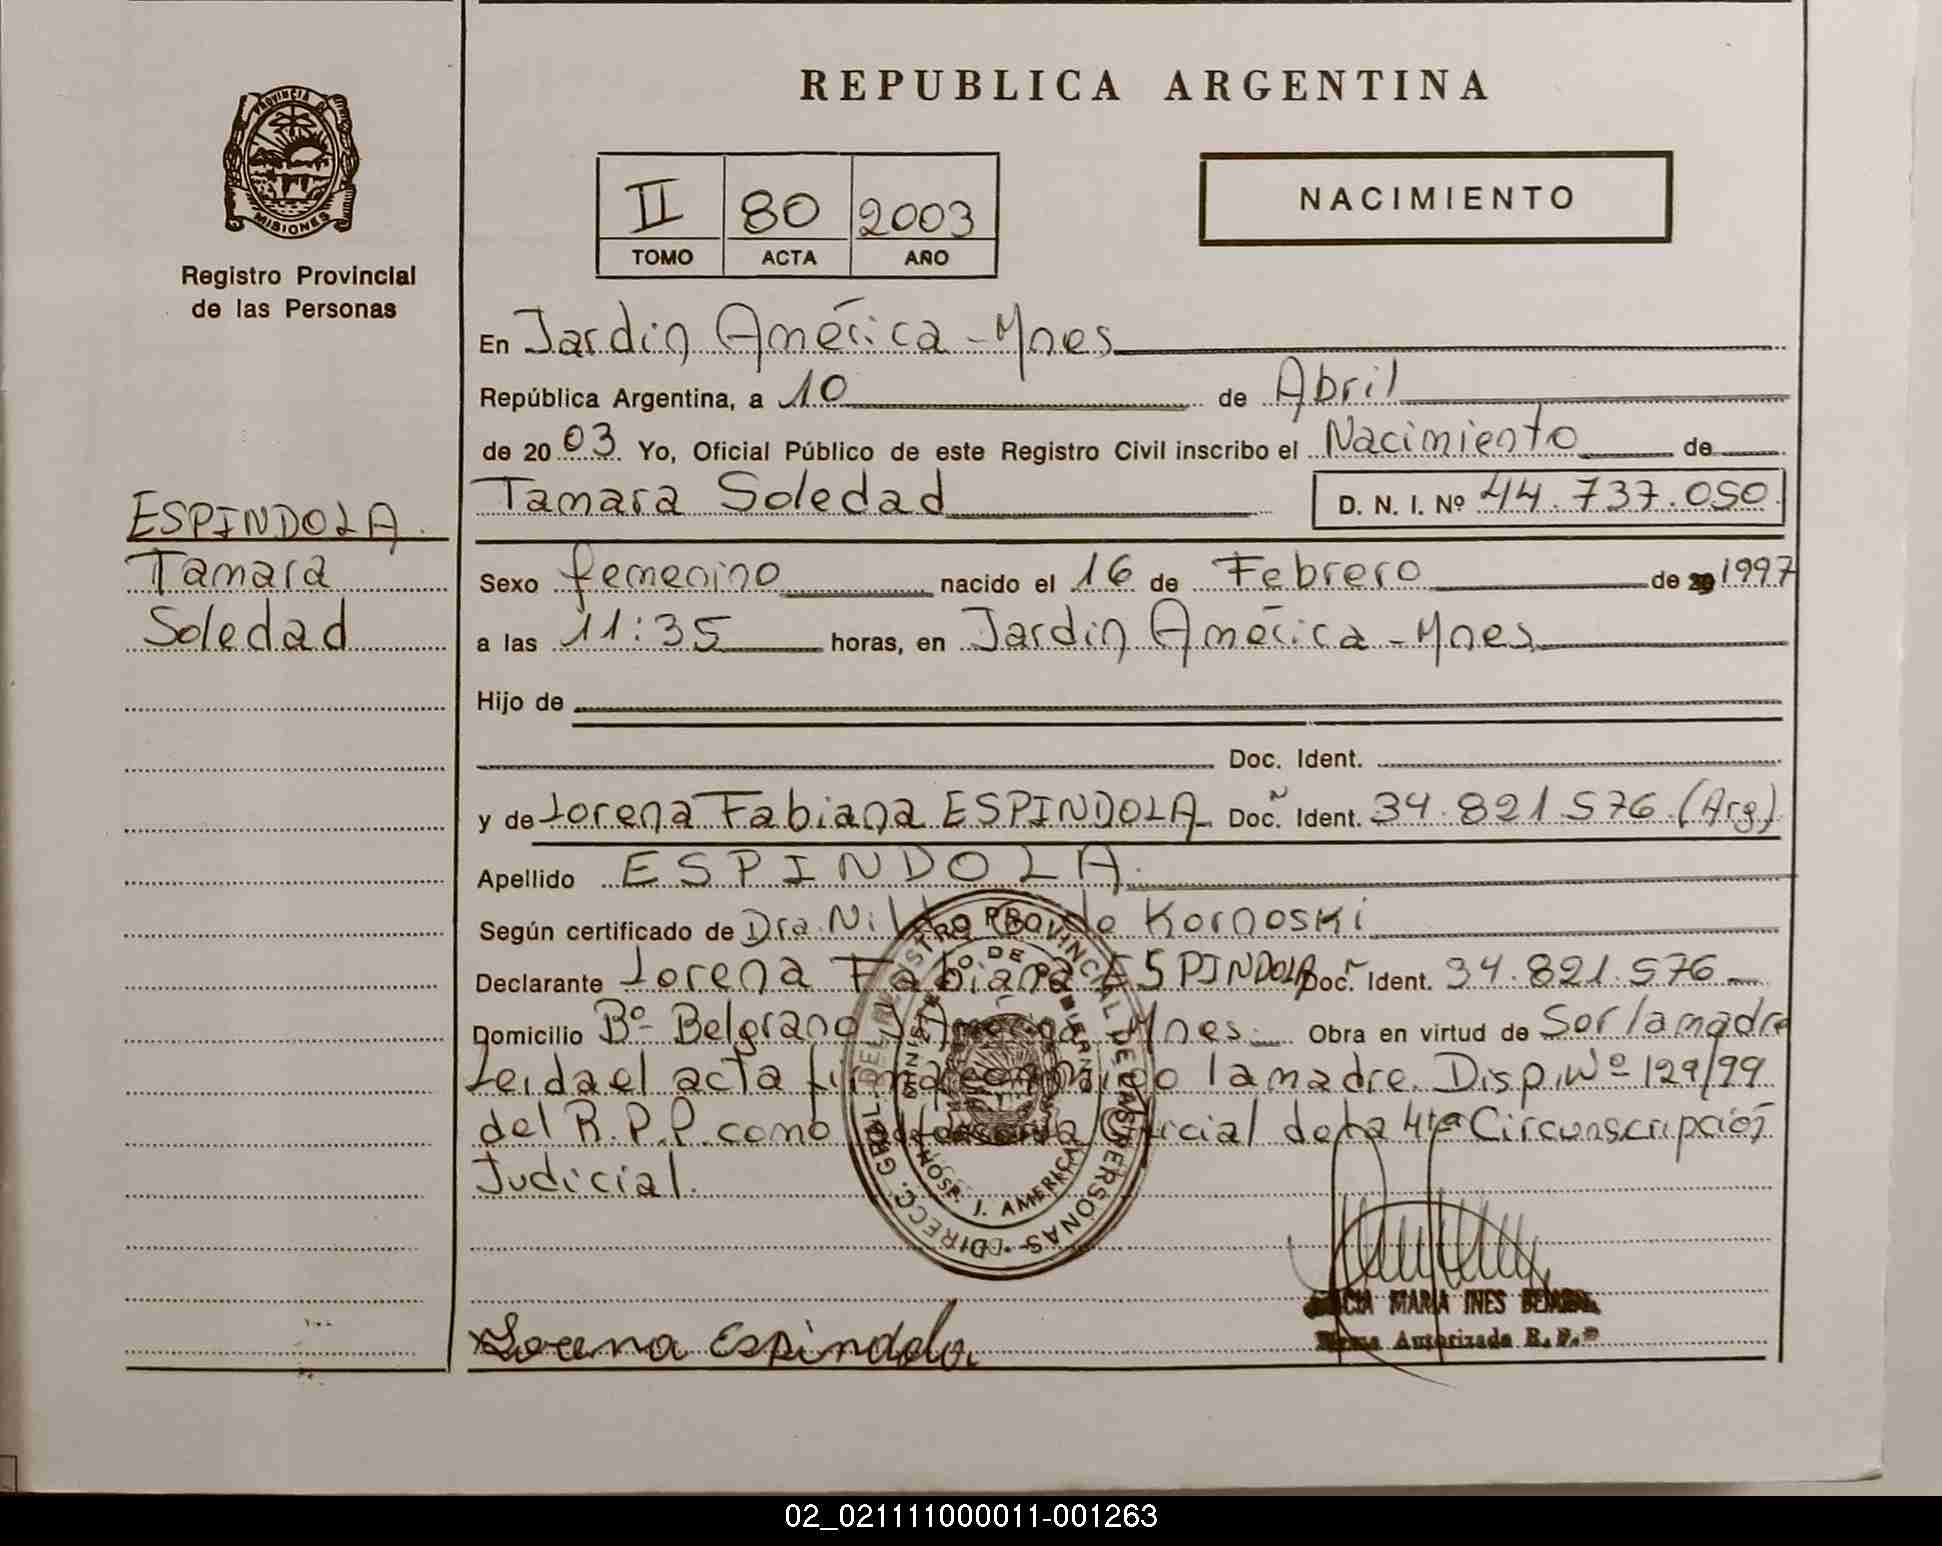 REPUBLICA ARGENTINA
PROVINCIA D
MISIONES
Registro Provincial
de las Personas
II 80 2003
TOMO ACTA AÑO
NACIMIENTO
En Jardin América - Mnes
República Argentina, a 10 de Abril
de 20 03 Yo, Oficial Público de este Registro Civil inscribo el Nacimiento de
Tamara Soledad D. N. I. Nº 44.737.050
ESPINDOLA
Tamara
Soledad
Sexo femenino nacido el 16 de Febrero de 1997
a las 11:35 horas, en Jardin América - Mnes
Hijo de
Doc. Ident.
y de Lorena Fabiana ESPINDOLA Doc. Ident. 34.821.576 (Arg)
Apellido ESPINDOLA
Según certificado de Dra. de Kornoski
Declarante Lorena Fabiana ESPINDOLA Doc. Ident. 34.821.576
Domicilio Bº Belgrano J. América Mnes Obra en virtud de Ser la madre
Leida el acta la madre. Disp. Nº 129/99
del R.P.P. como de la 4ta Circunscripción
Judicial.
DIRECC. GRAL. DEL REGISTRO PROVINCIAL DE LAS PERSONAS
J. AMERICA
Lorena Espindola
MARIA INES
Firma Autorizada R.P.P
02_021111000011-001263